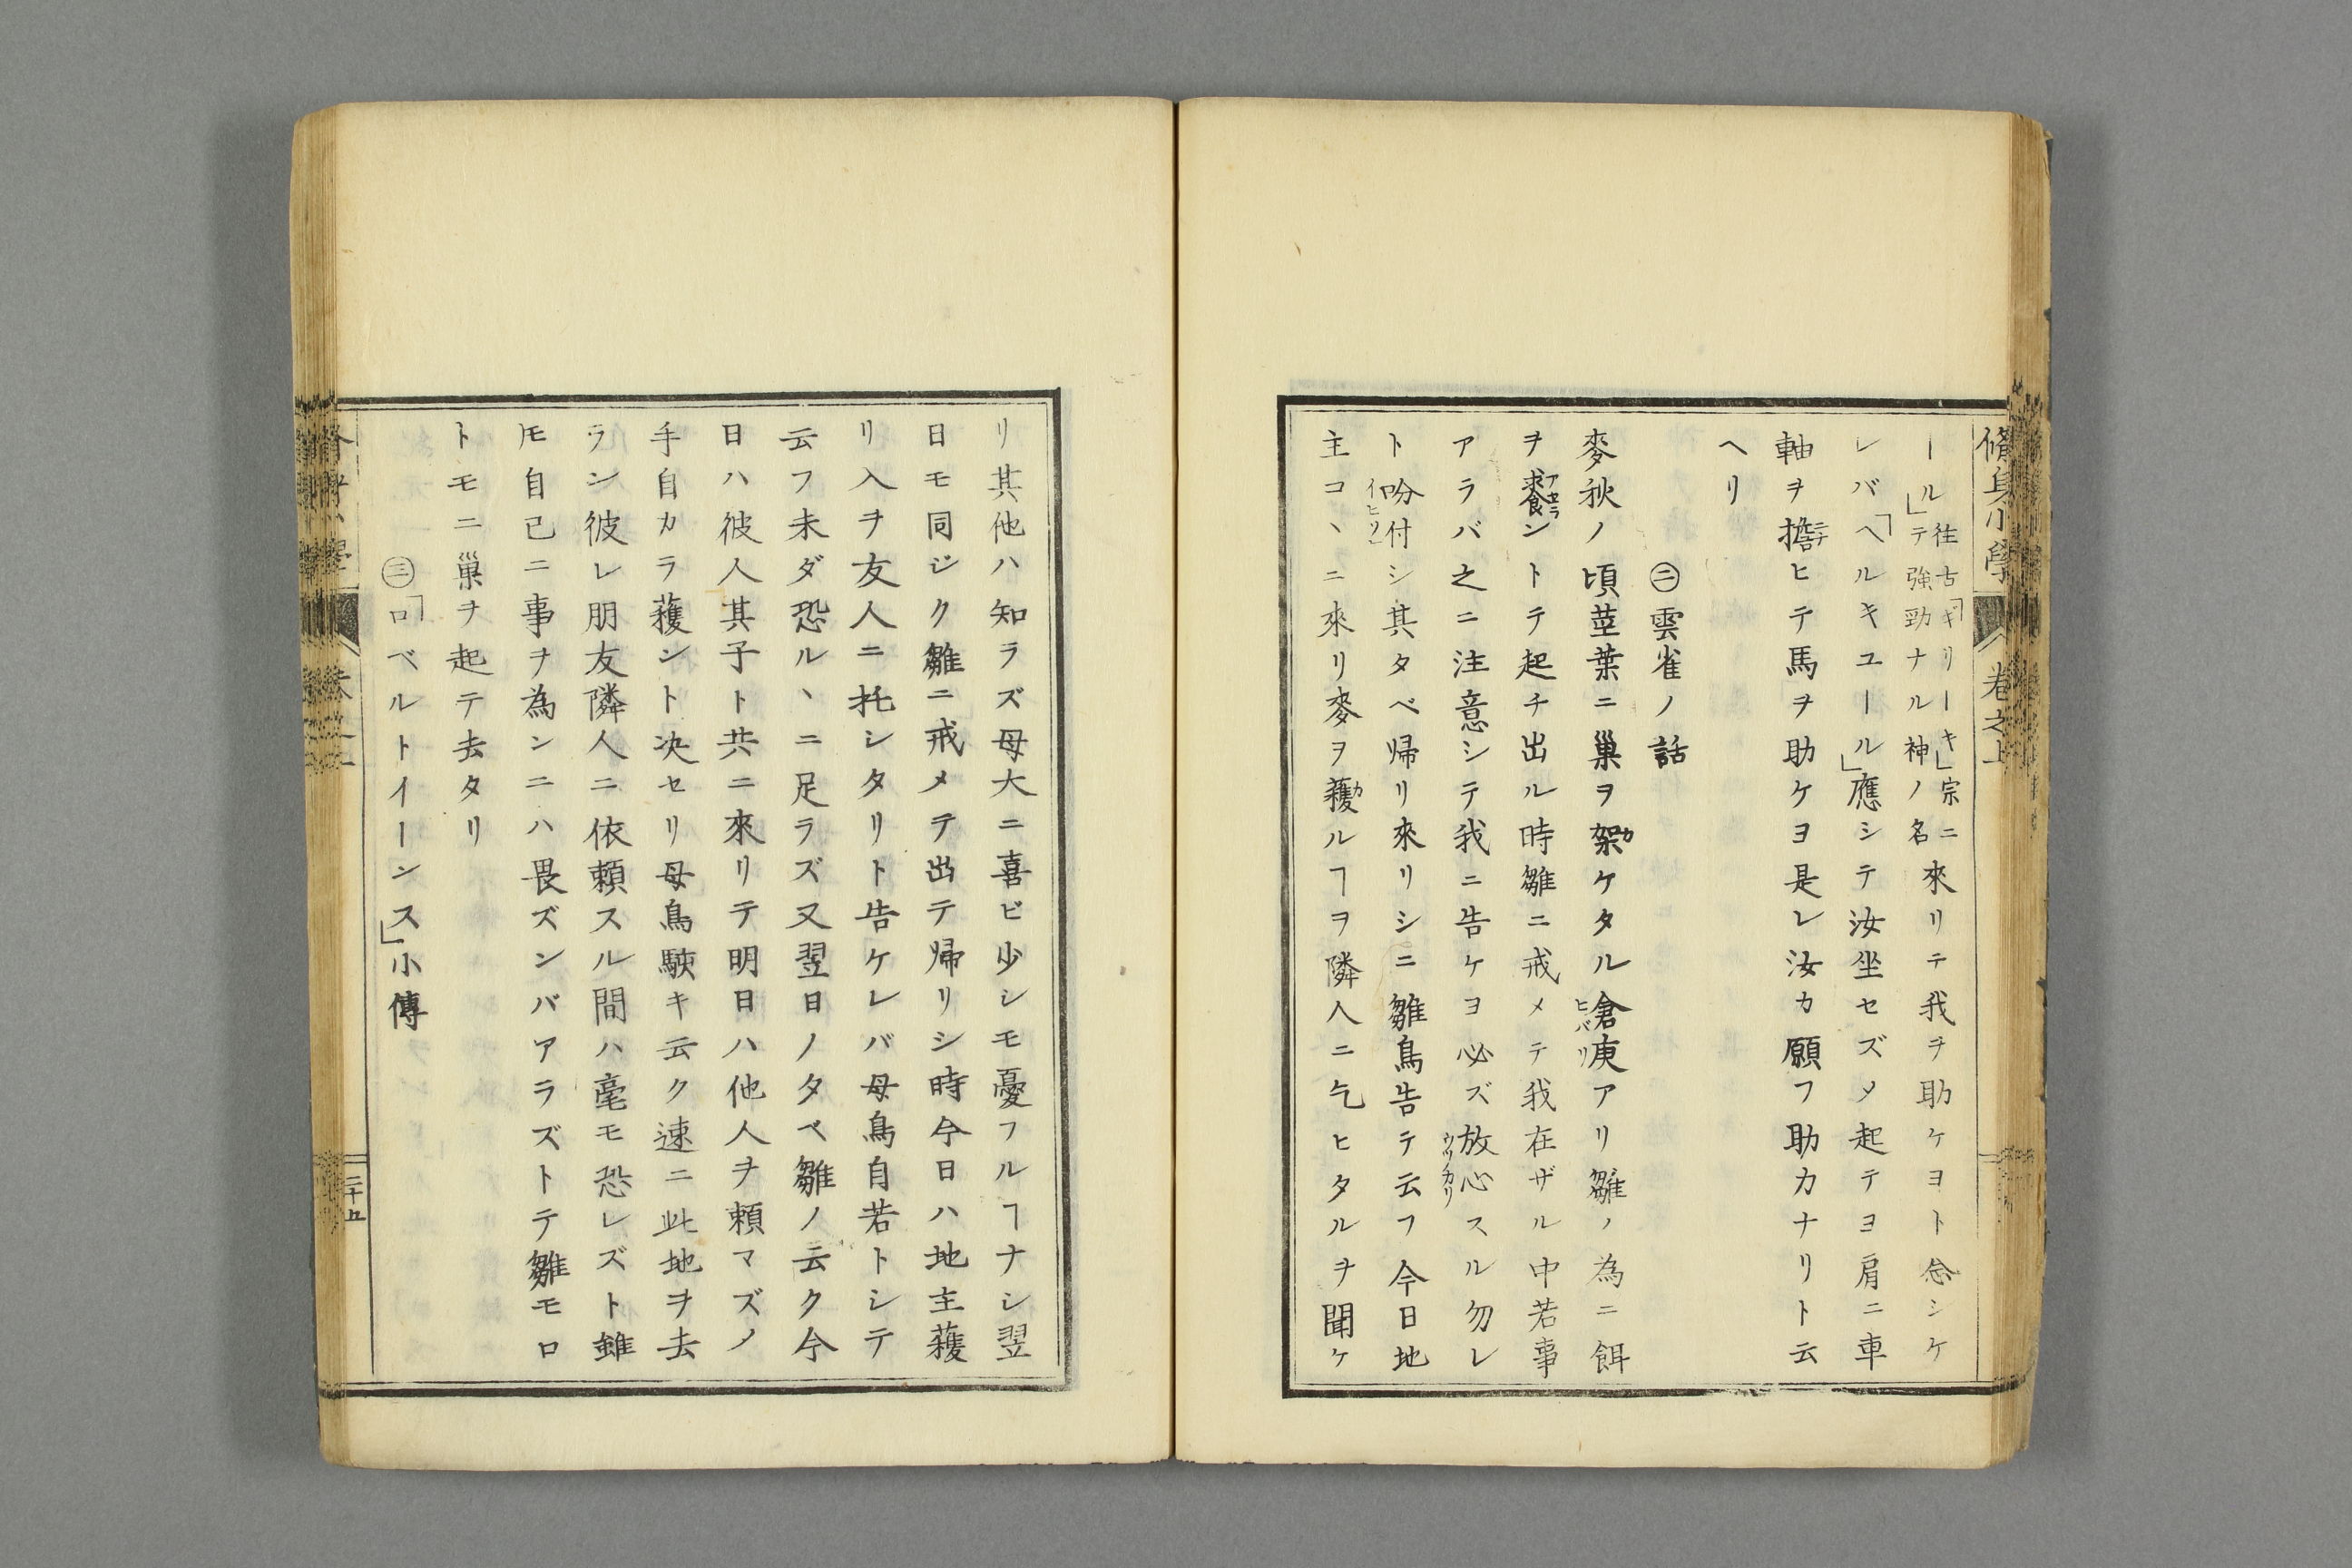 脩身小學 卷之上
ール」往古「ギリーキ」宗ニテ強勁ナル神ノ名來リテ我ヲ助ケヨト念シケ
レバ「ヘルキユール」應シテ汝坐セズメ起テヨ肩ニ車
軸ヲ擔ヒテ馬ヲ助ケヨ是レ汝カ願フ助力ナリト云
ヘリ
㊁雲雀ノ話
麥秋ノ頃莖葉ニ巢ヲ架ケタル鶬庚アリ雛ノ為ニ餌
ヲ養ントテ起チ出ル時雛ニ戒メテ我在ザル中若事
アラバ之ニ注意シテ我ニ告ケヨ必ズ放心スル勿レ
ト吩付シ其タベ帰リ來リシニ雛鳥告テ云フ今日地
主コヽニ來リ麥ヲ穫ルヿヲ隣人ニ乞ヒタルヲ聞ケ
リ其他ハ知ラズ母大ニ喜ビ少シモ憂フルヿナシ翌
日モ同ジク雛ニ戒メテ出テ帰リシ時今日ハ地主穫
リ入ヲ友人ニ托シタリト告ケレバ母鳥自若トシテ
云フ未ダ恐ルヽニ足ラズ又翌日ノタベ雛ノ云ク今
日ハ彼人其子ト共ニ來リテ明日ハ他人ヲ頼マズノ
手自カラ穫ント决セリ母鳥駛キ云ク速ニ此地ヲ去
ラン彼レ朋友隣人ニ依頼スル間ハ毫モ恐レズト雖
𪜈自已ニ事ヲ為ンニハ畏ズンバアラズトテ雛モロ
トモニ巢ヲ起テ去タリ
㊂「ロベルトイーンス」小傳
二十五